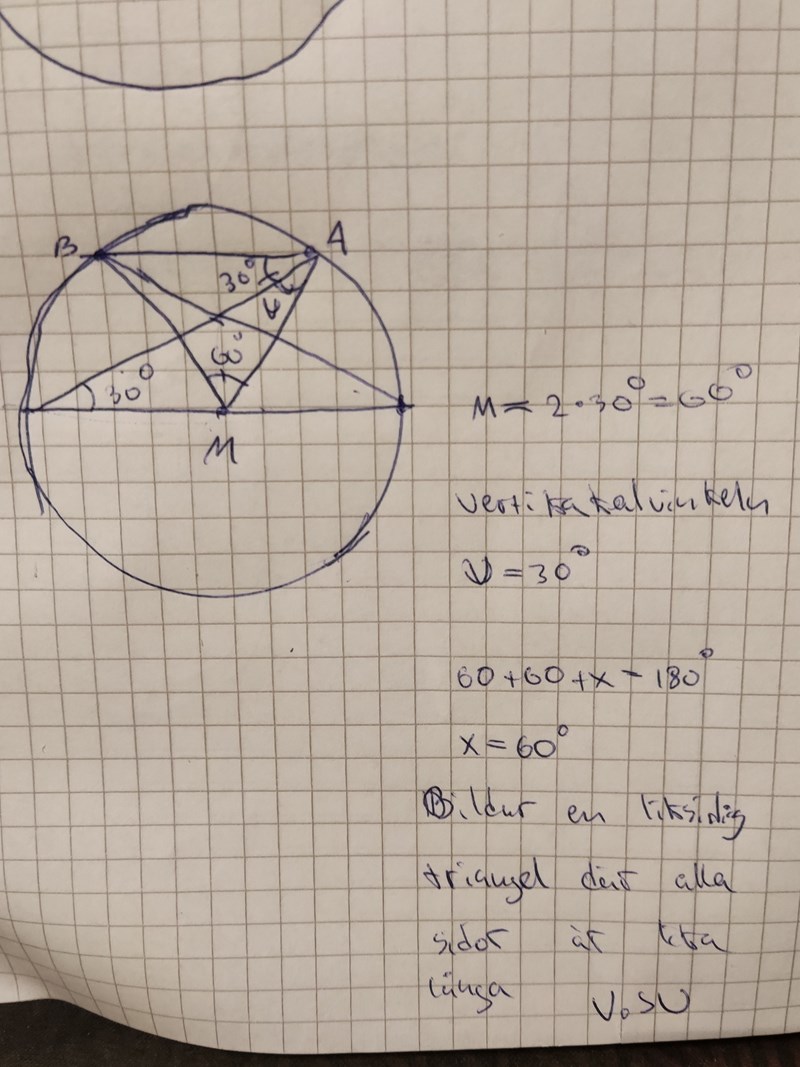 B
A
30°
v
60°
30°
M
M = 2·30° = 60°
vertikakalvinkeln
V = 30°
60+60+x = 180°
x = 60°
Bildar en liksidig
triangel där alla
sidor är lika
långa
V.S.V